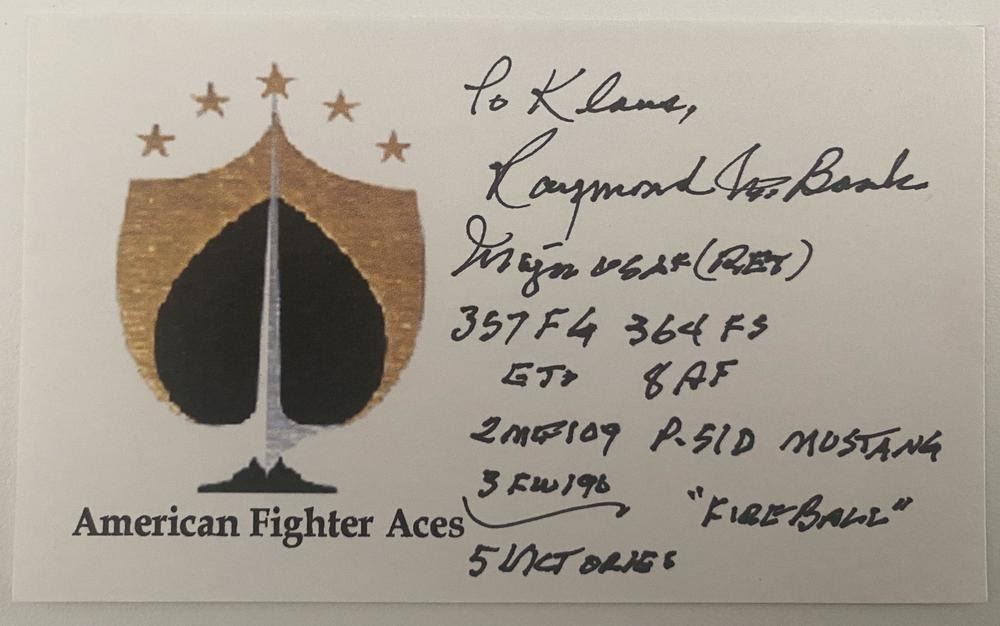 To Klaus,
Raymond M. Bank
Major USAF (RET)
357 FG 364 FS
ETO 8 AF
2 ME109 P-51D MUSTANG
3 FW190 "FIREBALL"
American Fighter Aces
5 VICTORIES